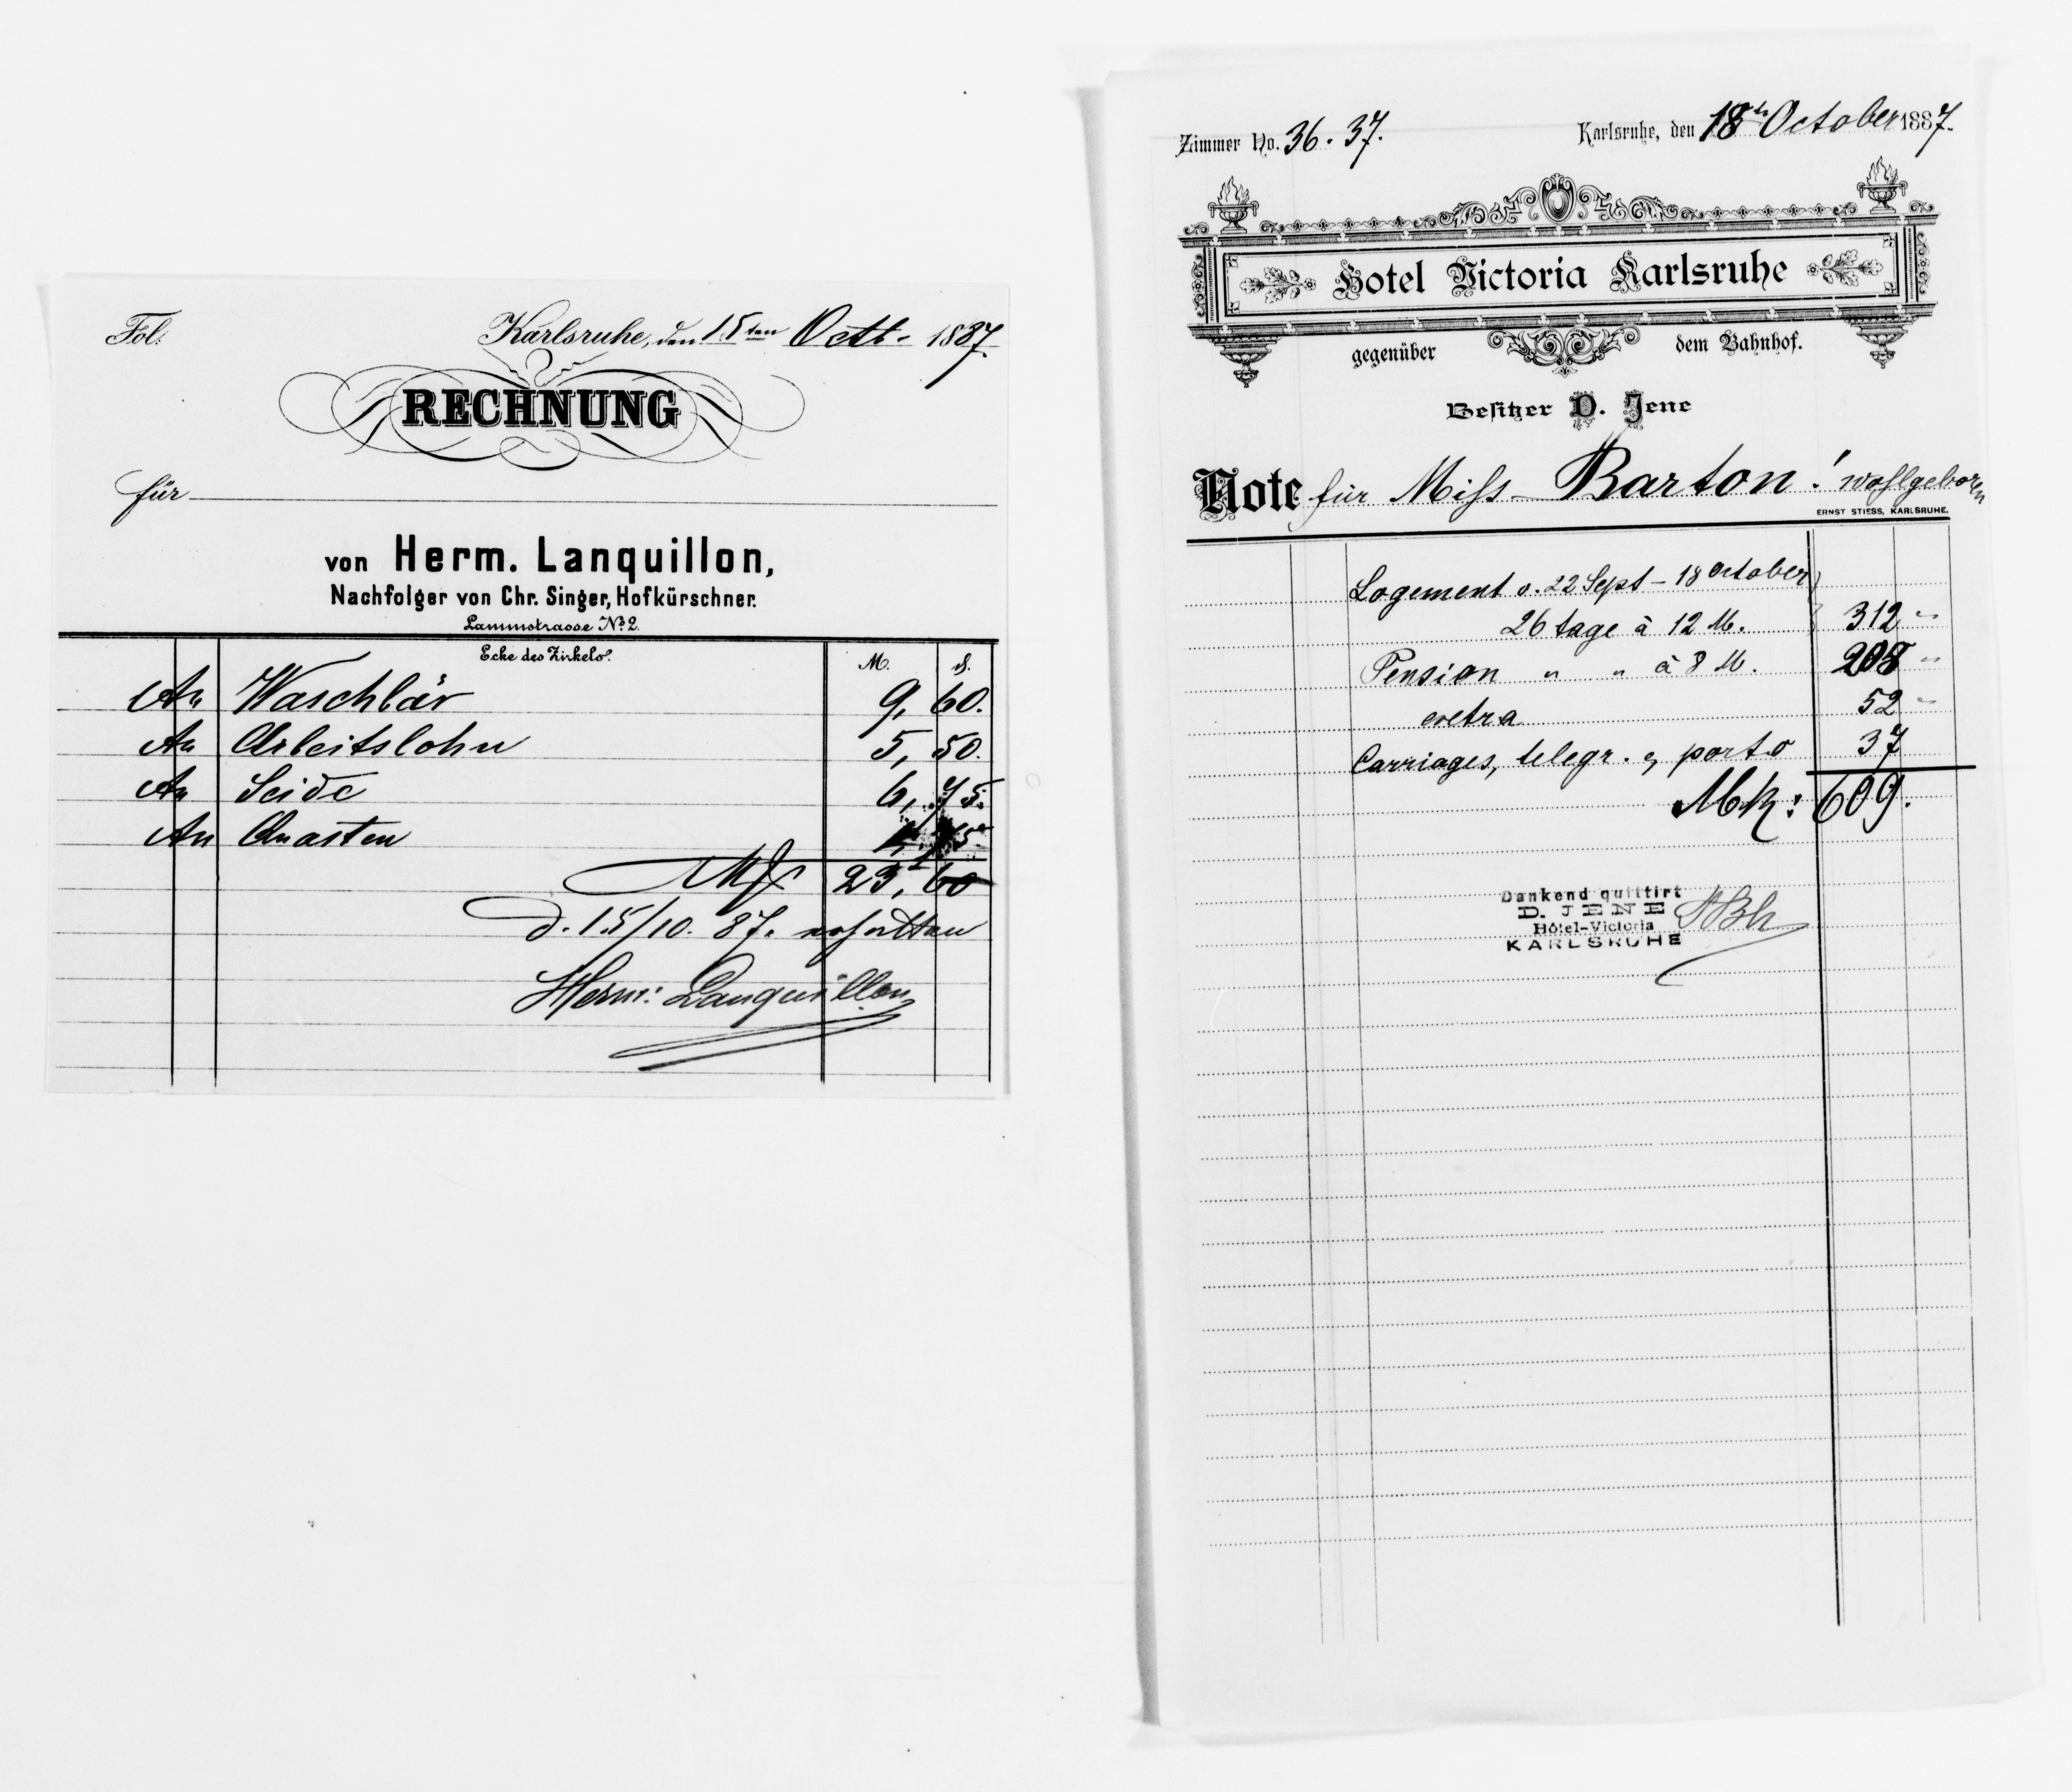 Fol.
Karlsruhe, den 15ten Octb. 1887.
RECHNUNG
für
von Herm. Lanquillon,
Nachfolger von Chr. Singer, Hofkürschner.
Lammstrasse No. 2.
Ecke des Zirkels.
M. d.
An Waschbär 9, 60.
An Arbeitslohn 5, 50.
An Seide 6, 75.
An Quasten 1, 75
Mk 23, 60
d. 15/10. 87. erhalten
Herm: Lanquillon
Zimmer No. 36. 37.
Karlsruhe, den 18th October 1887.
Hotel Victoria Karlsruhe
gegenüber dem Bahnhof.
Besitzer D. Jene
Note für Miss Barton! wohlgeboren
ERNST STIESS, KARLSRUHE.
Logement v. 22 Sept - 18 October
26 tage à 12 M. 312 "
Pension " " à 8 M. 208 "
extra 52 "
Carriages, telegr. & porto 37
Mk: 609.
Dankend quittirt
D. JENE
Hôtel-Victoria
KARLSRUHE